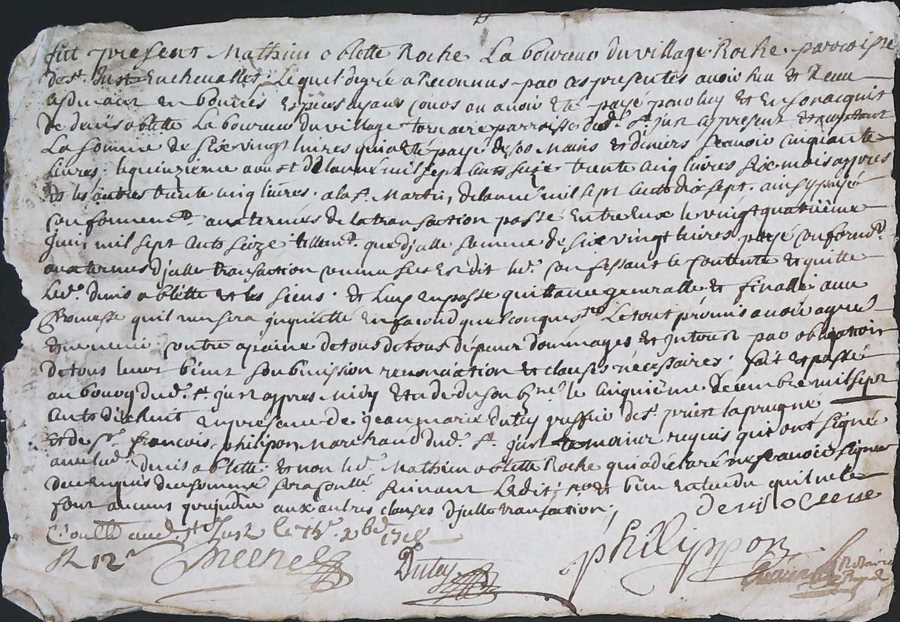 fut present Mathieu oblette Roche Laboureur du village Roche paroisse
de St Just en chevallet Lequel de gré a Reconnus par ces presentes avoir heu et Receu
en bonnes especes ayans cours ou avoir eté payé pour luy et en son acquit
de denis oblette Laboureur du village tornaire parroisse dud. St just cy present et acceptant
La somme de six vingt livres qui a eté payé de ses Mains et deniers scavoir cinquante
livres le quinzieme aoust de lanné mil sept cents seize trente cinq livres six mois appres
et les autres trente cinq livres a la St Martin de lanné mil sept cents dix sept ainsy payé
conformemt aux termes de la transaction passé entre eux le vingt quatrieme
Juin mil sept cents seize tellemt que djcelle somme de six vingt livres payé conformt
aux termes djcelle transaction led. confessant se contente et quitte
led. denis oblette et les siens et luy en passe quittance generalle et finalle avec
promesse quil nen sera jnquietté en facond quelconque Le tout promis avoir agreé
contre a peine de tous depens dommages et jnterest par obligation
de tous leurs biens soubmission renonciation et clauses necessaires fait et passé
au bourg dud. St just appres midy le cinquieme decembre mil sept
cents dix huit en presance de jean marie Dutey greffie de St priest laprugne
et de Sr francois philipon Marchand dud. St just temoins requis qui ont signé
avec led. denis oblette et non led. Mathieu oblette Roche qui a declaré ne scavoir signer
de ce enquis et somme suivant Ledit et bien entendu quil ne se
font aucuns prejudice aux autres clauses djcelle transaction denis oblette
Conttlle aud. St Just le xbre 1718
R 12s
Dutey
philippon
Notaire
Royal